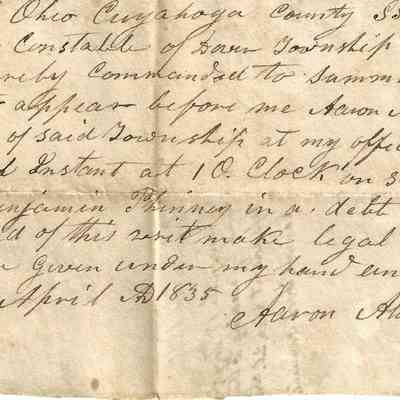 Ohio Cuyahoga County SS
Constable of Dover Township
ereby Commanded to Summ
appear before me Aaron A
of said Township at my offi
d Instant at 1 O. Clock on
enjamin Phinney in a debt
d of this writ make legal
Given under my hand an
April AD 1835
Aaron Al